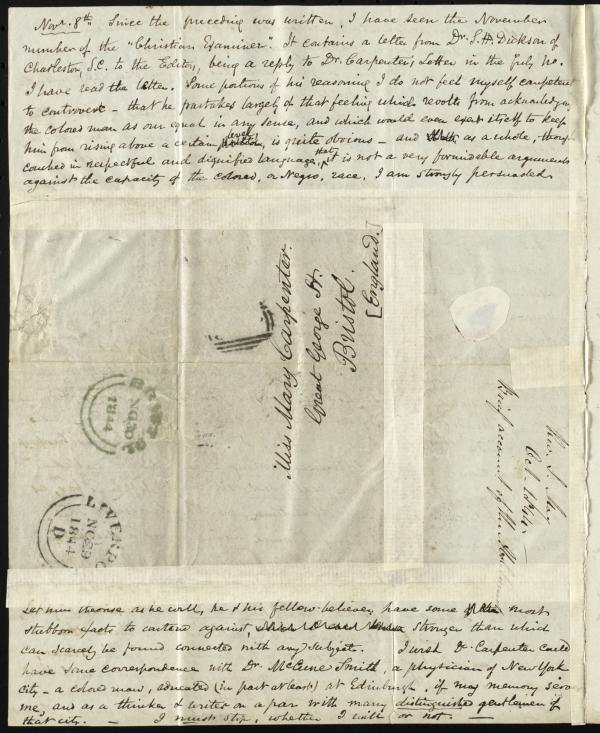 Novr. 8th. Since the preceding was written, I have seen the November
number of the "Christian Examiner". It contains a letter from Dr. S. H. Dickson of
Charleston, S.C. to the Editors, being a reply to Dr. Carpenter's Letter in the July no.
I have read the letter. Some portions of his reasoning I do not feel myself competent
to controvert – that he partakes largely of that feeling which revolts from acknowledging
the colored man as our equal in any sense, and which would even exert itself to keep
him from rising above a certain level, is quite obvious – and as a whole, tho'
couched in respectful and dignified language, that it is not a very formidable argument
against the capacity of the colored, or Negro, race, I am strongly persuaded.
Miss Mary Carpenter.
Great George St.
Bristol.
[England.]
BRISTOL
NO 30
1844
LIVERPO
NO 29
1844
D
Rev. S. May
Oct.
Brief account of the
Let him theorise as he will, he & his fellow-believers have some most
stubborn facts to contend against, stronger than which
can scarcely be found connected with any subject. I wish Dr. Carpenter could
have some correspondence with Dr. McCune Smith, a physician of New York
city – a colored man, educated (in part at least) at Edinburgh, if my memory serve
me, and as a thinker & writer on a par with many distinguished gentlemen of
that city. – I must stop, whether I will or not. –